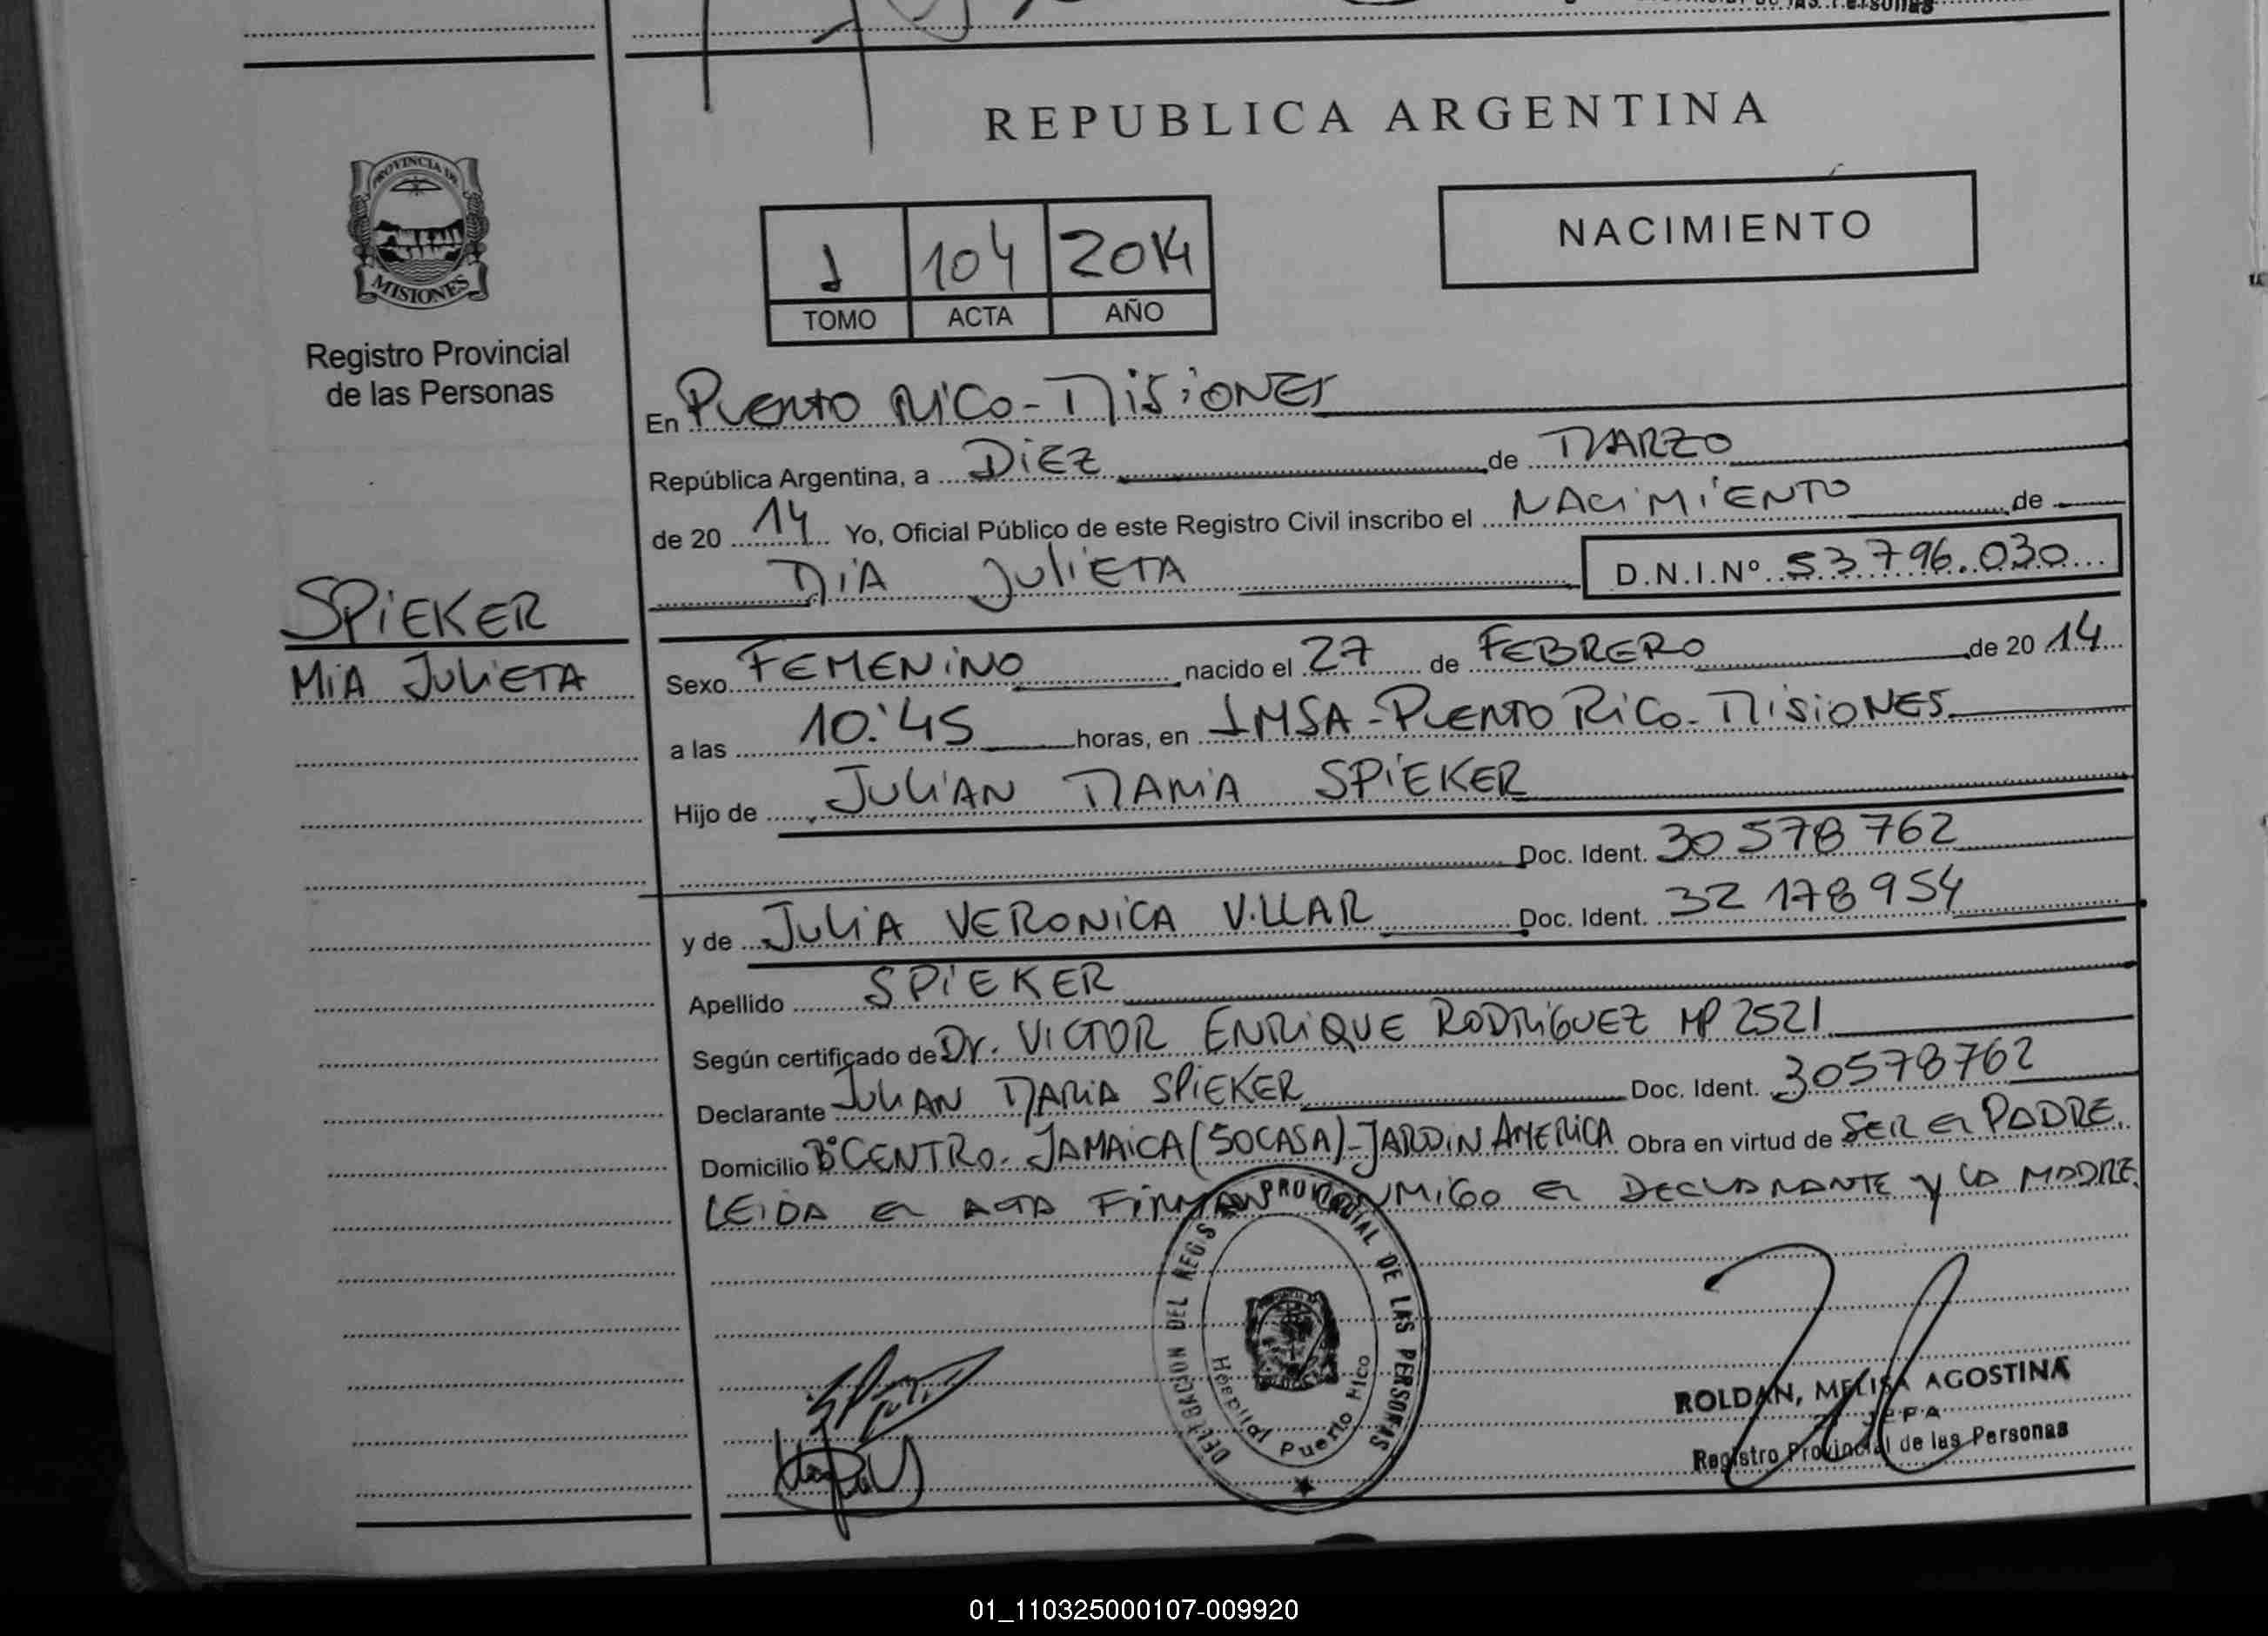 de las Personas
REPUBLICA ARGENTINA
PROVINCIA DE
MISIONES
Registro Provincial
de las Personas
1 104 2014
TOMO ACTA AÑO
NACIMIENTO
En PUERTO RICO - MISIONES
República Argentina, a DIEZ de MARZO
de 20 14 Yo, Oficial Público de este Registro Civil inscribo el NACIMIENTO de
MIA JULIETA D.N.I.Nº 53.796.030
SPIEKER
MIA JULIETA
Sexo FEMENINO nacido el 27 de FEBRERO de 20 14
a las 10:45 horas, en IMSA - PUERTO RICO - MISIONES
Hijo de JULIAN MARIA SPIEKER
Doc. Ident. 30 578 762
y de JULIA VERONICA VILLAR Doc. Ident. 32 178 954
Apellido SPIEKER
Según certificado de Dr. VICTOR ENRIQUE RODRIGUEZ MP 2521
Declarante JULIAN MARIA SPIEKER Doc. Ident. 30578762
Domicilio Bº CENTRO - JAMAICA (50 CASA) - JARDIN AMERICA Obra en virtud de SER EL PADRE.
LEIDA EL ACTA FIRMAN CONMIGO EL DECLARANTE Y LA MADRE.
DELEGACION DEL REGIS PROVINCIAL DE LAS PERSONAS
Hospital Puerto Rico
ROLDAN, MELISA AGOSTINA
Registro Provincial de las Personas
01_110325000107-009920